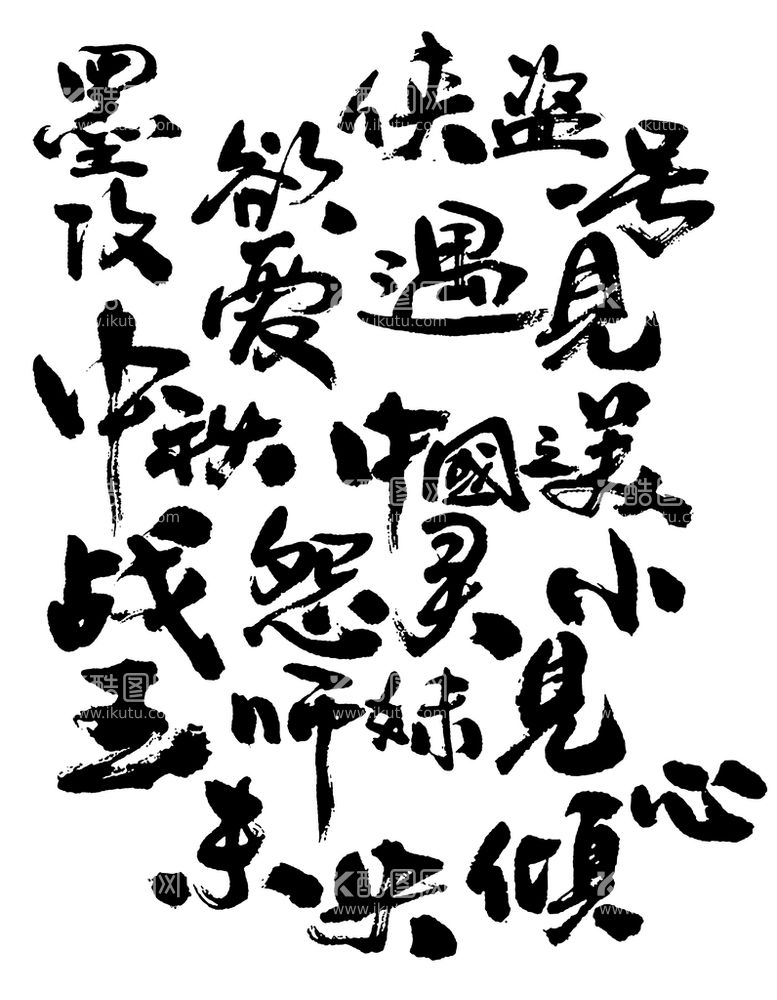 墨攻
欲爱
侠盗
一号
遇见
中秋
中國之美
战
怨灵
小王
师妹
见
未央
倾心
酷图网
www.ikutu.com